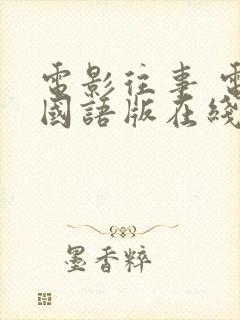 電影往事 電
國語版在綫
墨香粹